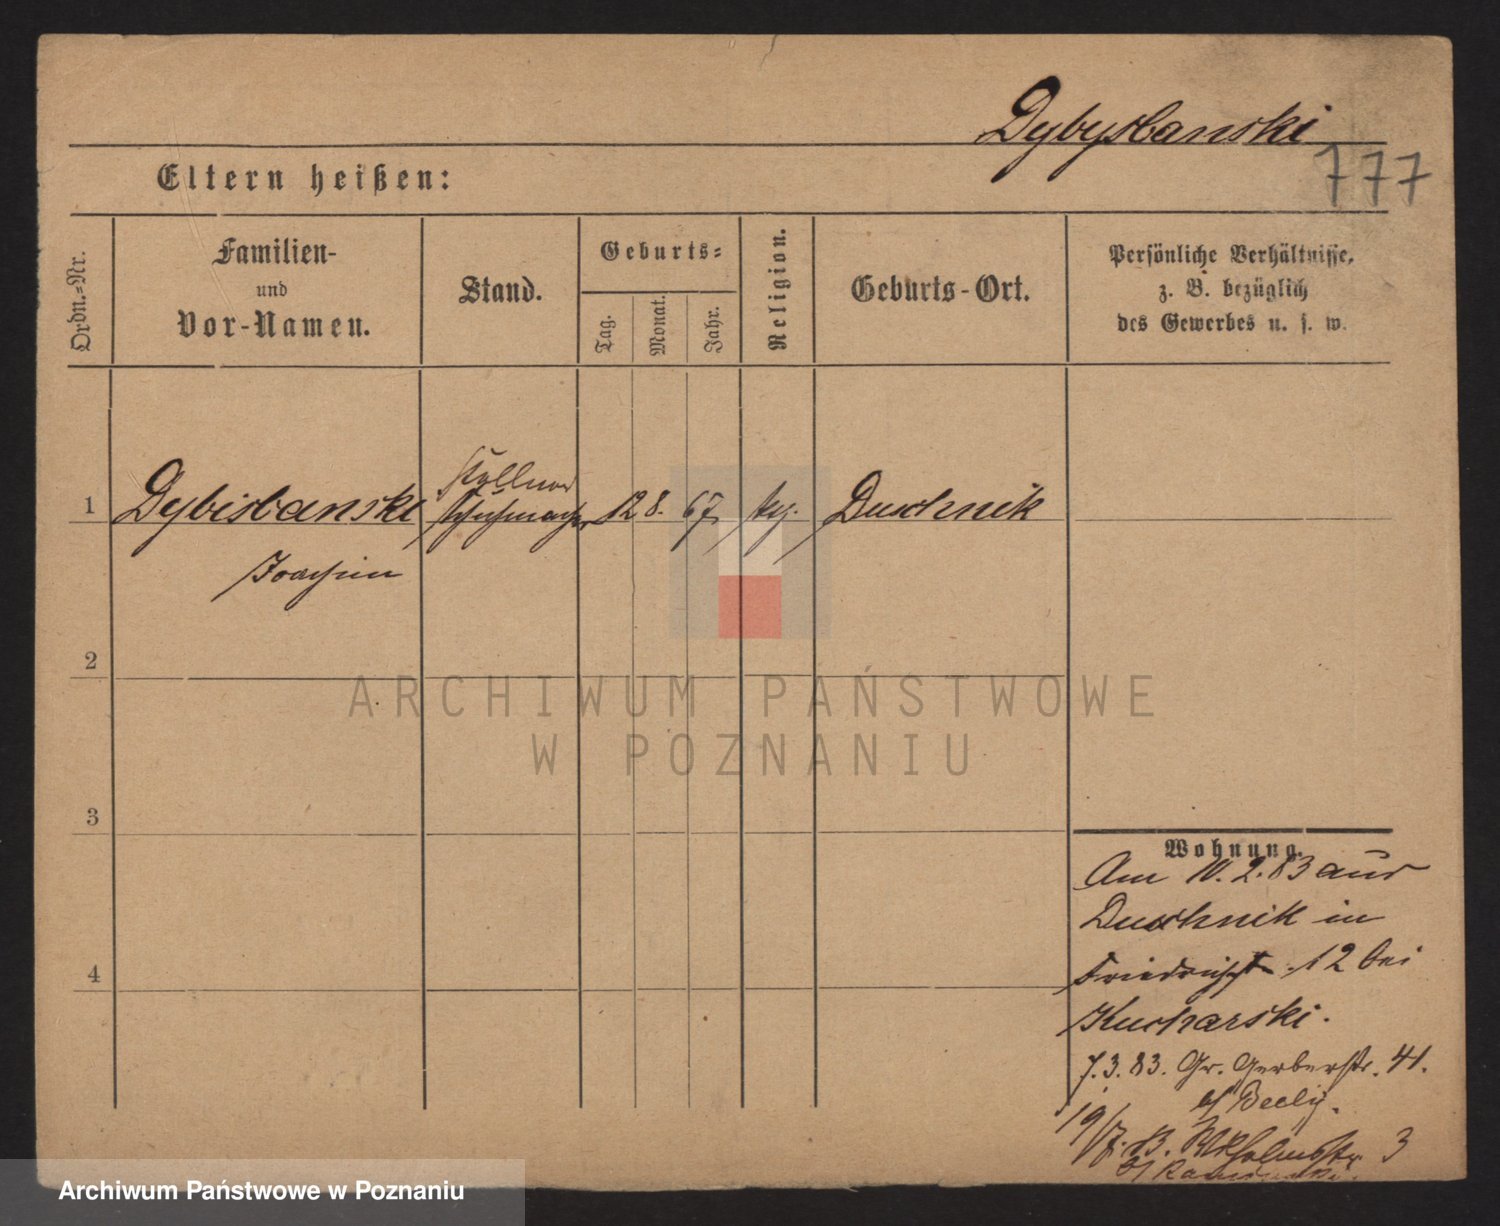 Dybysbanski
777
Eltern heißen:
Ordn.-Nr.
Familien-
und
Vor-Namen.
Stand.
Geburts-
Tag.
Monat.
Jahr.
Religion.
Geburts-Ort.
Persönliche Verhältnisse,
z. B. bezüglich
des Gewerbes u. s. w.
1
Dybisbanski
Schuhmacher
12
8.
67
Duschnik
Joachim
2
3
4
ARCHIWUM PAŃSTWOWE
W POZNANIU
Wohnung.
Am 10. 2. 83 aus
Duschnik in
Friedrichst. 12 bei
Kucharski.
7. 3. 83. Gr. Gerberstr. 41.
19/7. 83. Wilhelmsstr 3
Archiwum Państwowe w Poznaniu